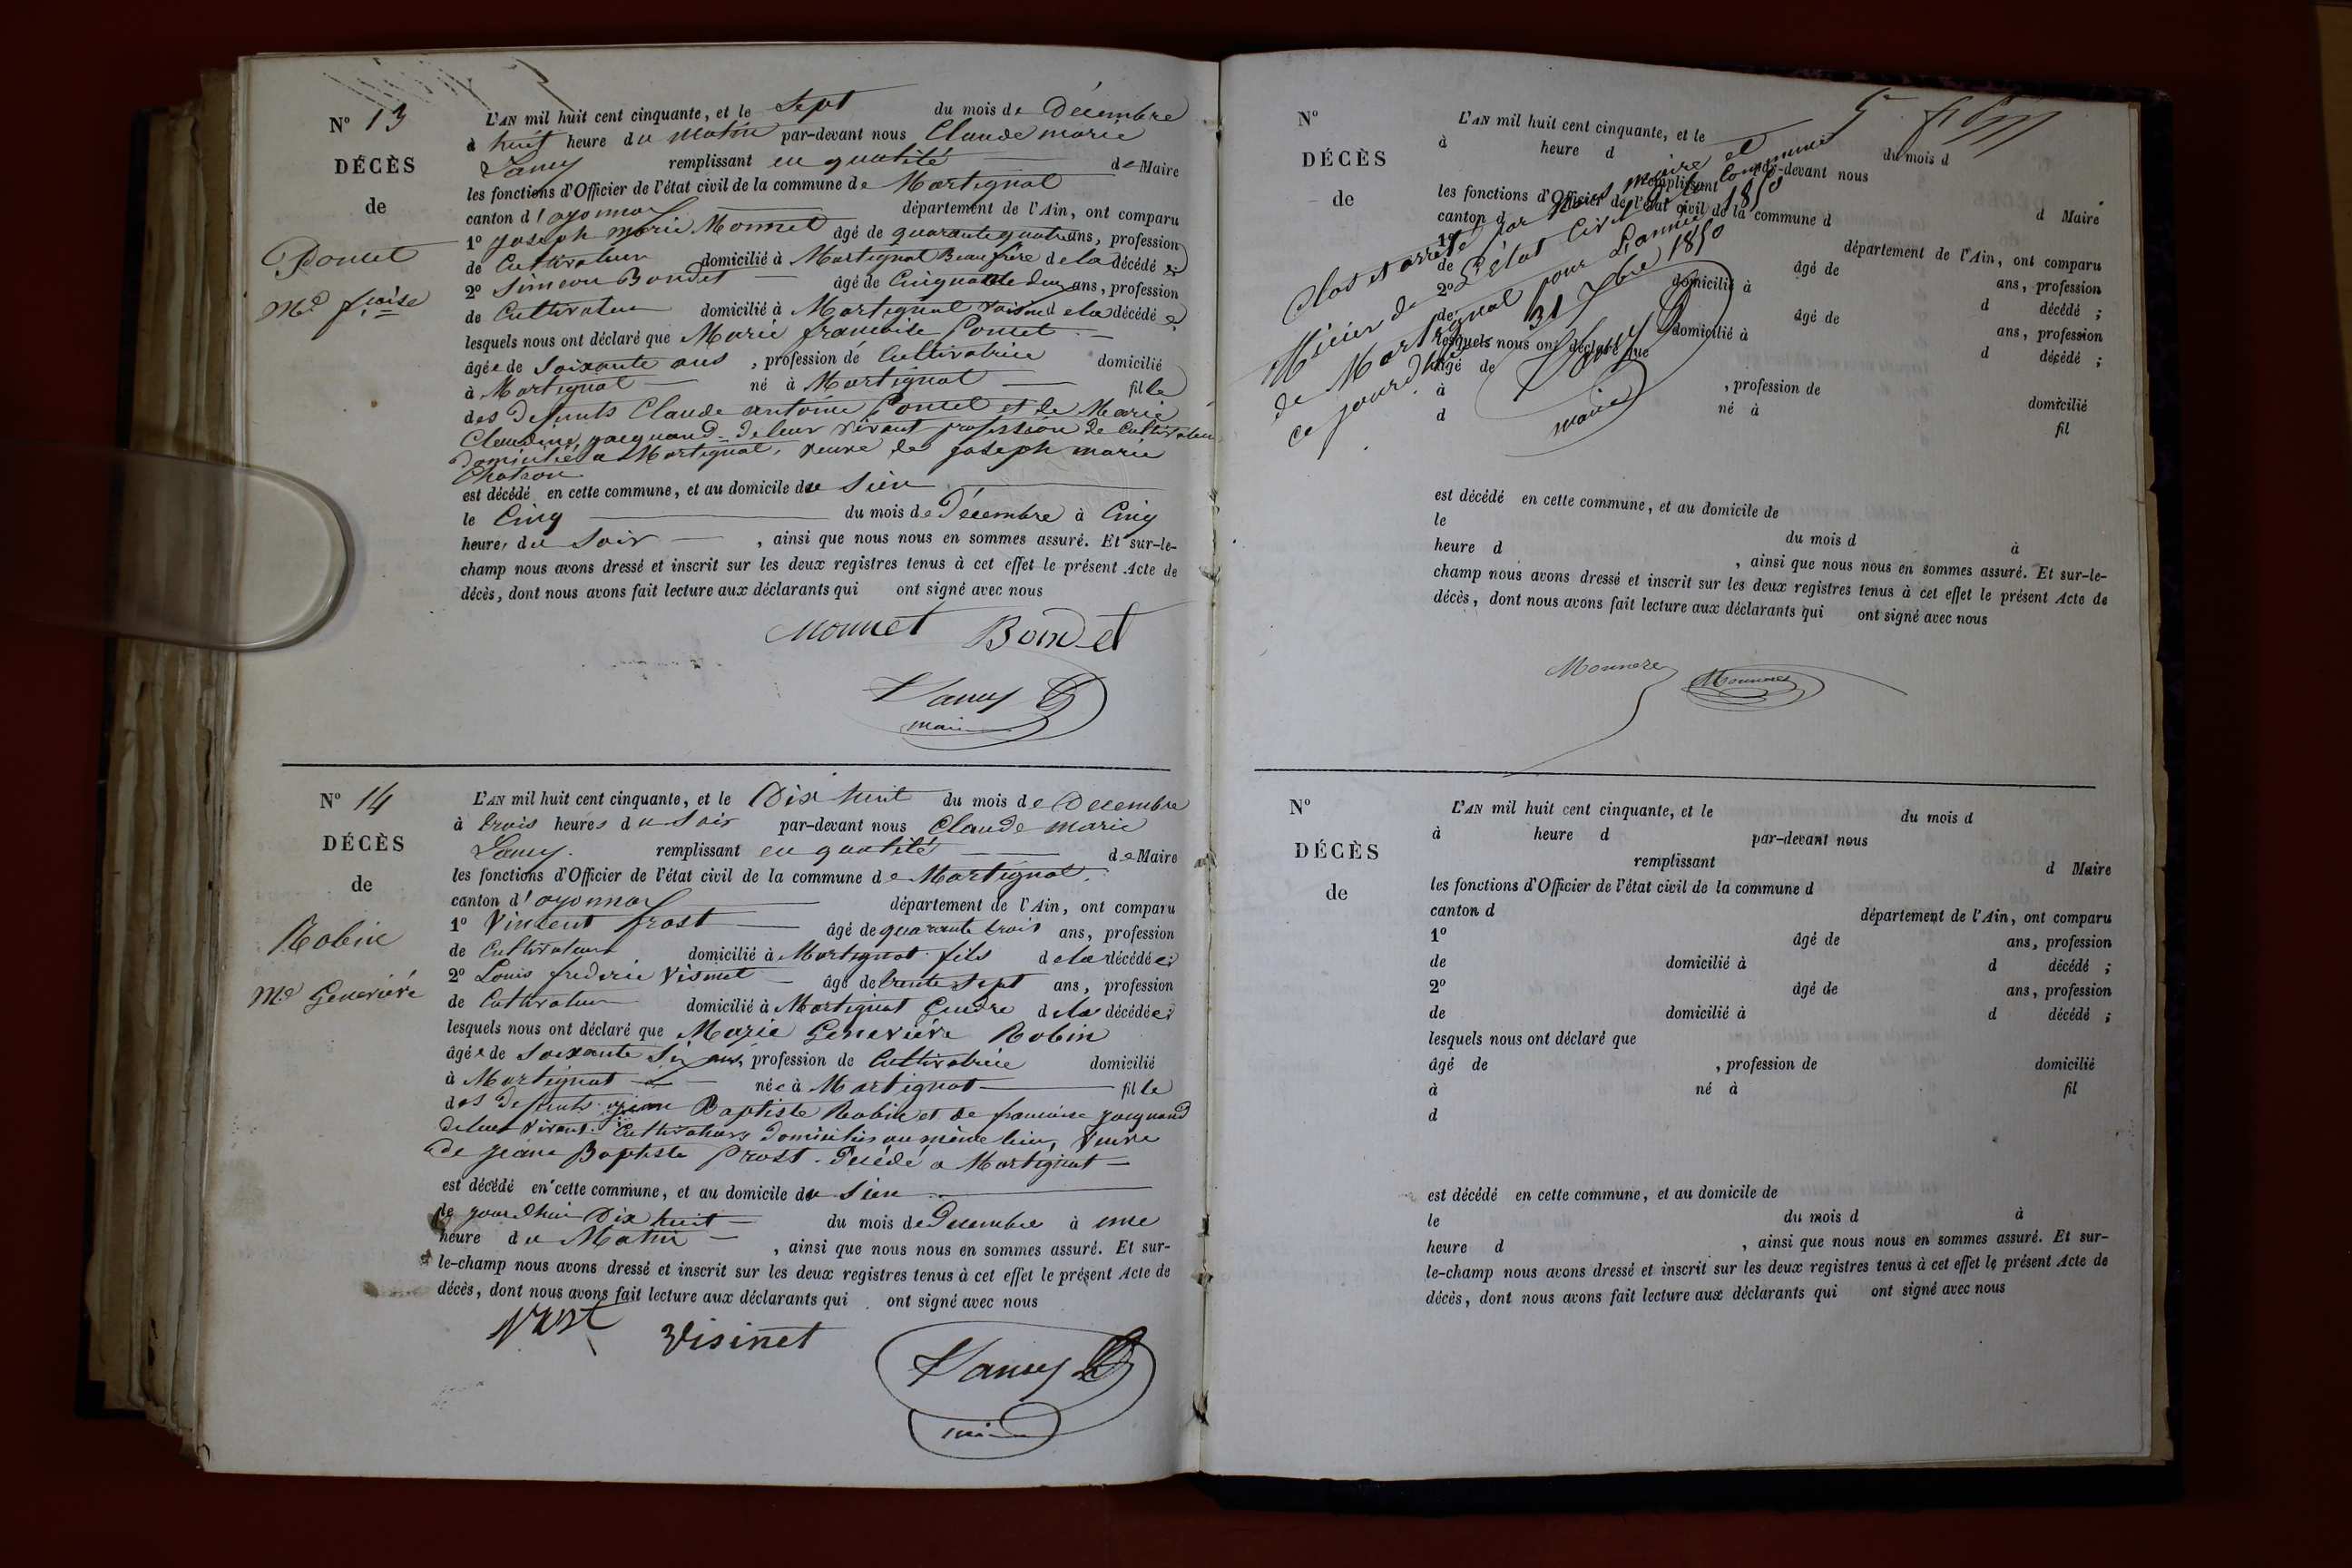 N° 13
DÉCÈS
de
Poncet
Mie fçoise
L'AN mil huit cent cinquante, et le Sept du mois de Décembre
à huit heure du Matin par-devant nous Claude marie
Lancy remplissant en qualité de Maire
les fonctions d'Officier de l'état civil de la commune de Martignat
canton d'oyonnax département de l'Ain, ont comparu
1° joseph marie Monnet âgé de quarante quatre ans, profession
de Cultivateur domicilié à Martignat Beau frère de la décédé e;
2° Simeon Bondet âgé de Cinquante deux ans, profession
de Cultivateur domicilié à Martignat voisin de la décédé e;
lesquels nous ont déclaré que Marie francoise Poncet
âgée de Soixante ans, profession de Cultivatrice domicilié
à Martignat né à Martignat fille
des defunts Claude antoine Poncet et de Marie
Claudine jacquand de leur vivant profession de Cultivateurs
domiciliés a Martignat, veuve de joseph marie
Chatron
est décédé en cette commune, et au domicile du Sien
le Cinq du mois de Décembre à Cinq
heures du Soir, ainsi que nous nous en sommes assuré. Et sur-le-
champ nous avons dressé et inscrit sur les deux registres tenus à cet effet le présent Acte de
décès, dont nous avons fait lecture aux déclarants qui ont signé avec nous
Monnet Bondet
Lancy
maire
N° 14
DÉCÈS
de
Robin
Mie Geneviéve
L'AN mil huit cent cinquante, et le Dix huit du mois de Decembre
à trois heures du Soir par-devant nous Claude marie
Lancy. remplissant en qualité de Maire
les fonctions d'Officier de l'état civil de la commune de Martignat.
canton d'oyonnax département de l'Ain, ont comparu
1° Vincent prost âgé de quarante trois ans, profession
de Cultivateur domicilié à Martignat fils de la décédé e;
2° Louis frederic Visinet âgé de trente Sept ans, profession
de Cultivateur domicilié à Martignat Gendre de la décédé e;
lesquels nous ont déclaré que Marie Geneviéve Robin
âgée de Soixante Six ans, profession de Cultivatrice domicilié
à Martignat née à Martignat fille
des defunts jean Baptiste Robin et de francoise jacquand
de leur vivant Cultivateurs domiciliés au même lieu, Veuve
de jean Baptiste Prost décédé a Martignat
est décédé en cette commune, et au domicile du Sien
le jourd'hui Dix huit du mois de Decembre à une
heure du Matin, ainsi que nous nous en sommes assuré. Et sur-
le-champ nous avons dressé et inscrit sur les deux registres tenus à cet effet le présent Acte de
décès, dont nous avons fait lecture aux déclarants qui ont signé avec nous
prost Visinet
Lancy
N°
DÉCÈS
de
L'AN mil huit cent cinquante, et le du mois d
à heure d par-devant nous
remplissant d Maire
les fonctions d'Officier de l'état civil de la commune d
canton d département de l'Ain, ont comparu
1° âgé de ans, profession
de domicilié à d décédé ;
2° âgé de ans, profession
de domicilié à d décédé ;
lesquels nous ont déclaré que
âgé de , profession de domicilié
à né à fil
d
Clos et arrêté par Nous maire et
officier de L'état Civil de la Commune
de Martignat pour L'année 1850
ce jourd'hui 31 Xbre 1850
Lancy
maire
est décédé en cette commune, et au domicile de
le du mois d à
heure d , ainsi que nous nous en sommes assuré. Et sur-le-
champ nous avons dressé et inscrit sur les deux registres tenus à cet effet le présent Acte de
décès, dont nous avons fait lecture aux déclarants qui ont signé avec nous
N°
DÉCÈS
de
L'AN mil huit cent cinquante, et le du mois d
à heure d par-devant nous
remplissant d Maire
les fonctions d'Officier de l'état civil de la commune d
canton d département de l'Ain, ont comparu
1° âgé de ans, profession
de domicilié à d décédé ;
2° âgé de ans, profession
de domicilié à d décédé ;
lesquels nous ont déclaré que
âgé de , profession de domicilié
à né à fil
d
est décédé en cette commune, et au domicile de
le du mois d à
heure d , ainsi que nous nous en sommes assuré. Et sur-
le-champ nous avons dressé et inscrit sur les deux registres tenus à cet effet le présent Acte de
décès, dont nous avons fait lecture aux déclarants qui ont signé avec nous